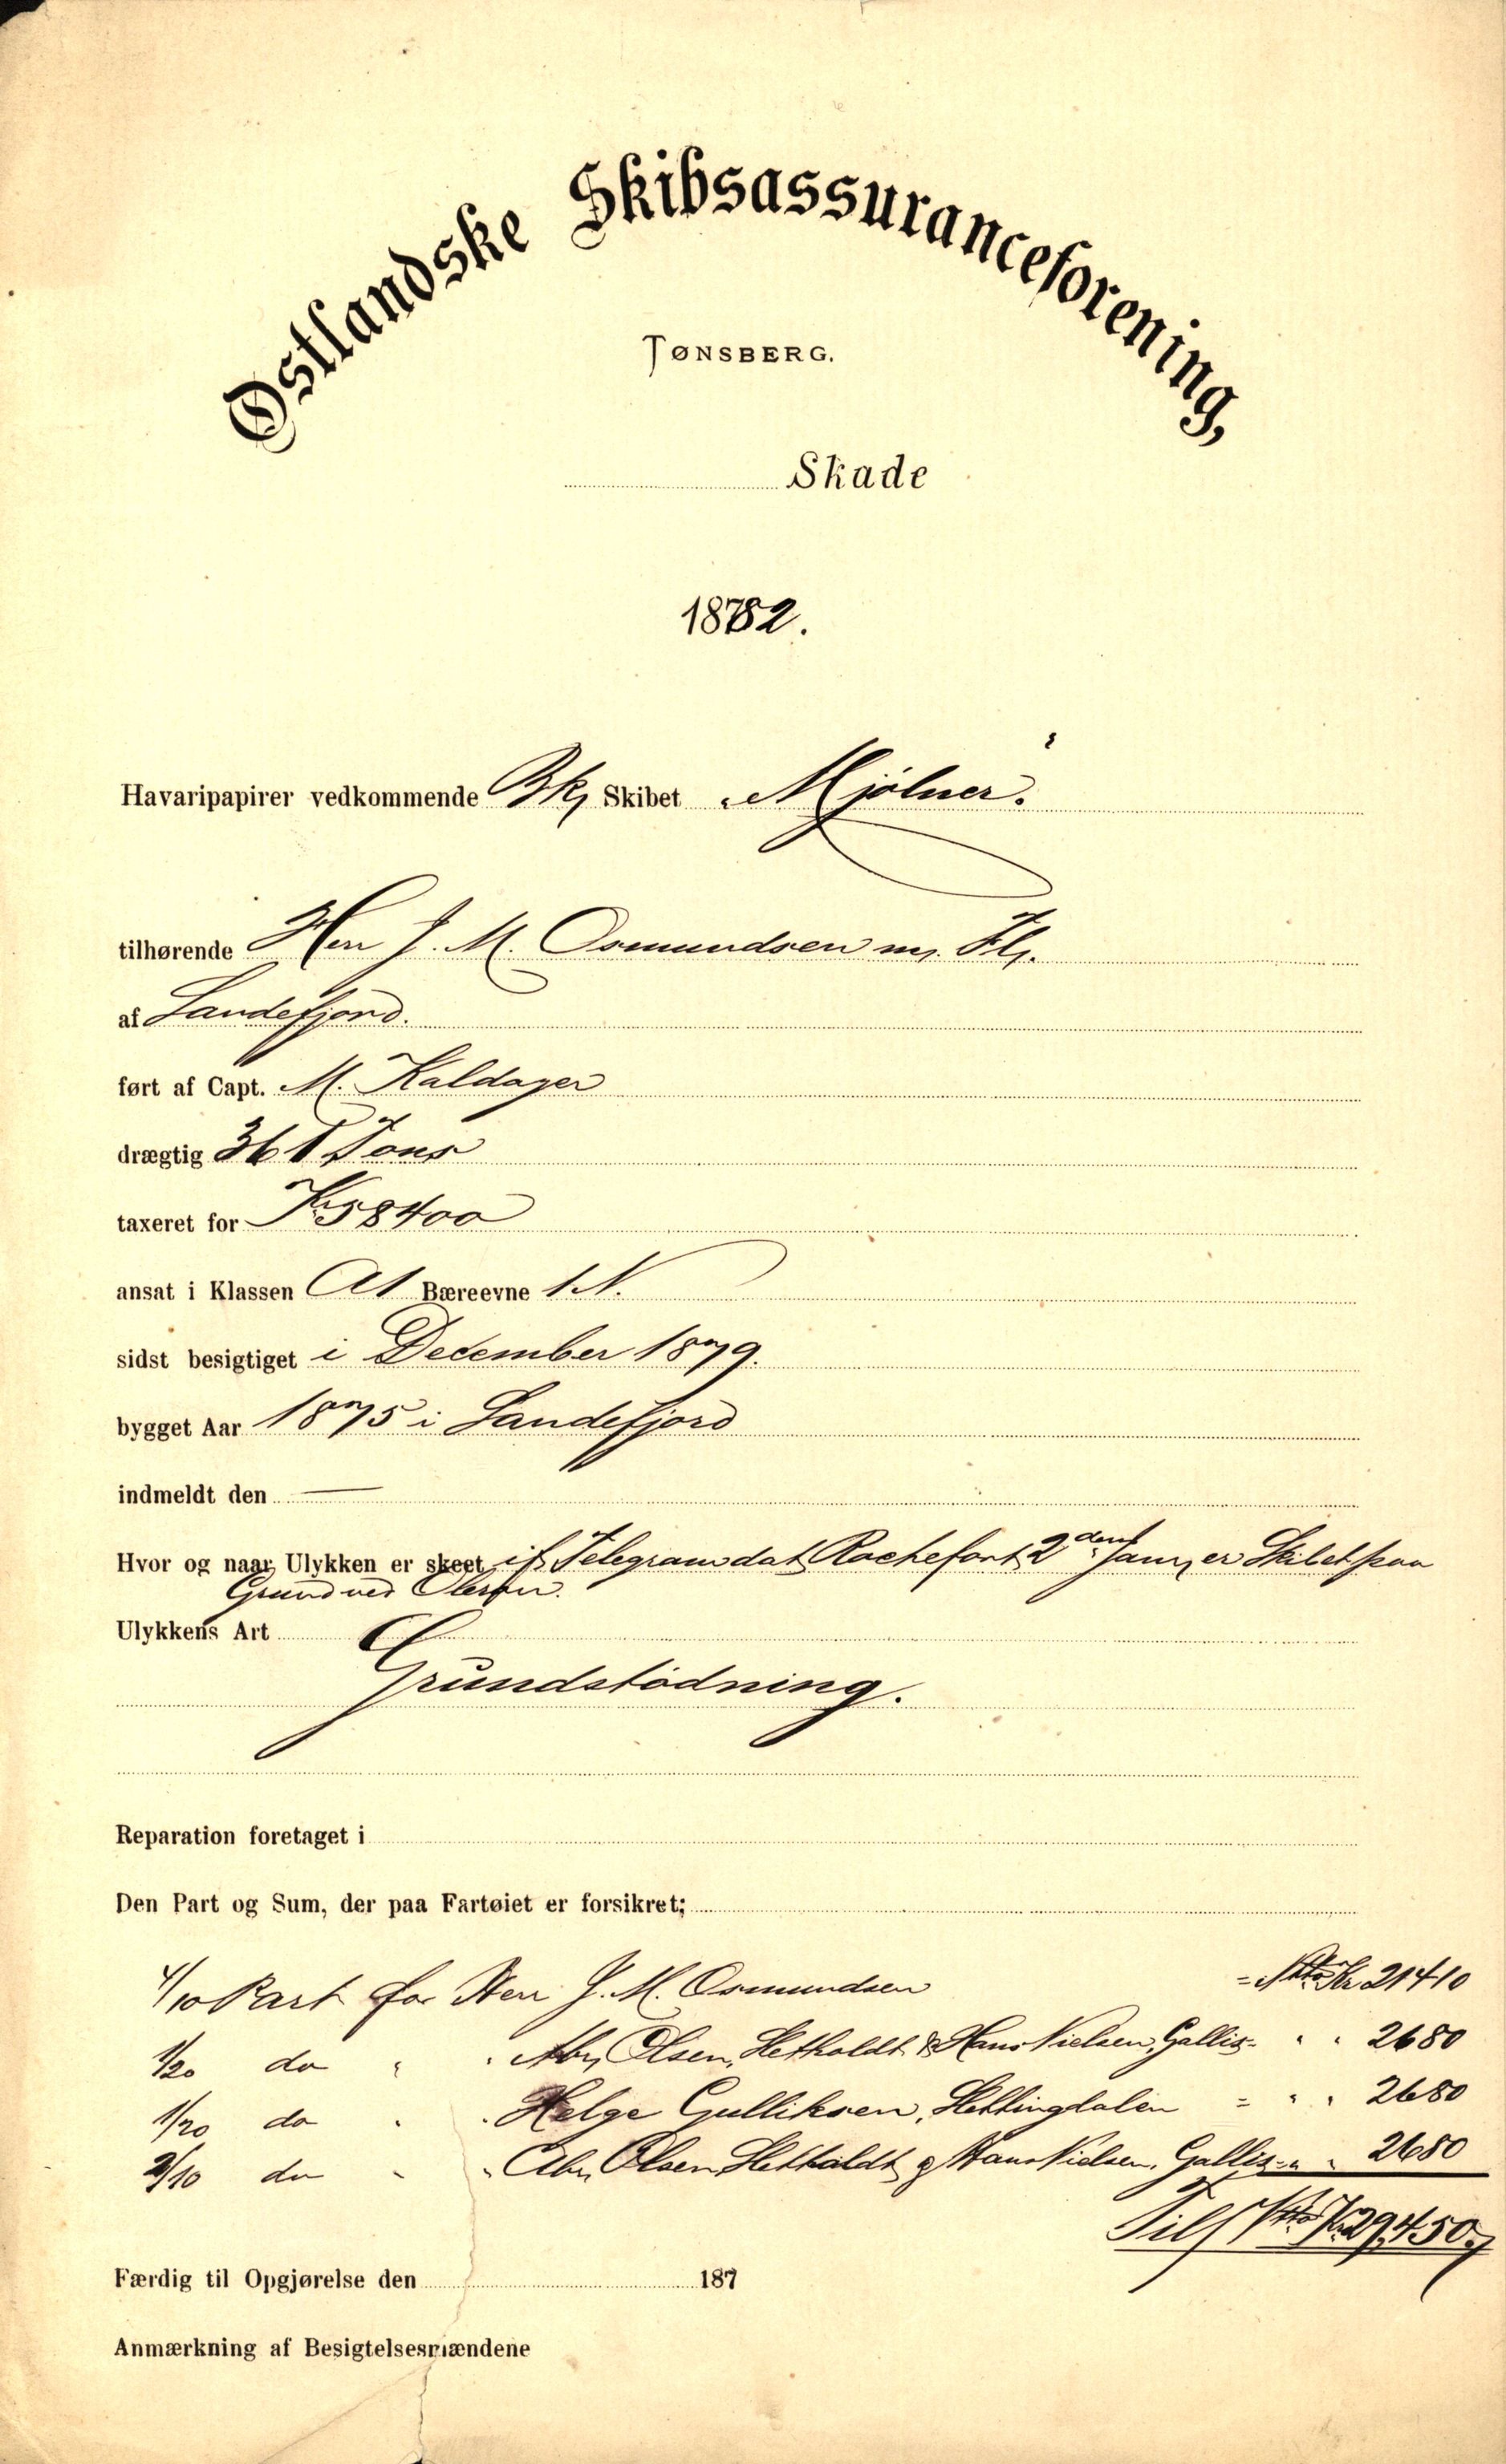 Østlandske Skibsassuranceforening,
TØNSBERG.
Skade
1882.
Havaripapirer vedkommende Bk, Skibet „Mjølner“
tilhørende Herr J. M. Osmundsen m. Fl.
af Sandefjord.
ført af Capt. M. Kaldager
drægtig 361 Tons
taxeret for Kr 58400
ansat i Klassen A1 Bæreevne 1 N.
sidst besigtiget i December 1879.
bygget Aar 1875 i Sandefjord
indmeldt den —
Hvor og naar Ulykken er skeet if. Telegram dat. Rochefort 2den Janr, er Skibet paa
Grund ved Oleron.
Ulykkens Art
Grundstødning.
Reparation foretaget i
Den Part og Sum, der paa Fartøiet er forsikret;
4/10 Part for Herr J. M. Osmundsen = Ntto Kr 21410
1/20 do " " Abr. Olsen, Hetholdt & Hans Nielsen, Gallis = " " 2680
1/20 do " " Helge Gulliksen, = " " 2680
2/10 do " " Abr. Olsen Hetholdt & Hans Nielsen, Gallis = " " 2680
Tils. Ntto Kr 29450
Færdig til Opgjørelse den 187
Anmærkning af Besigtelsesmændene